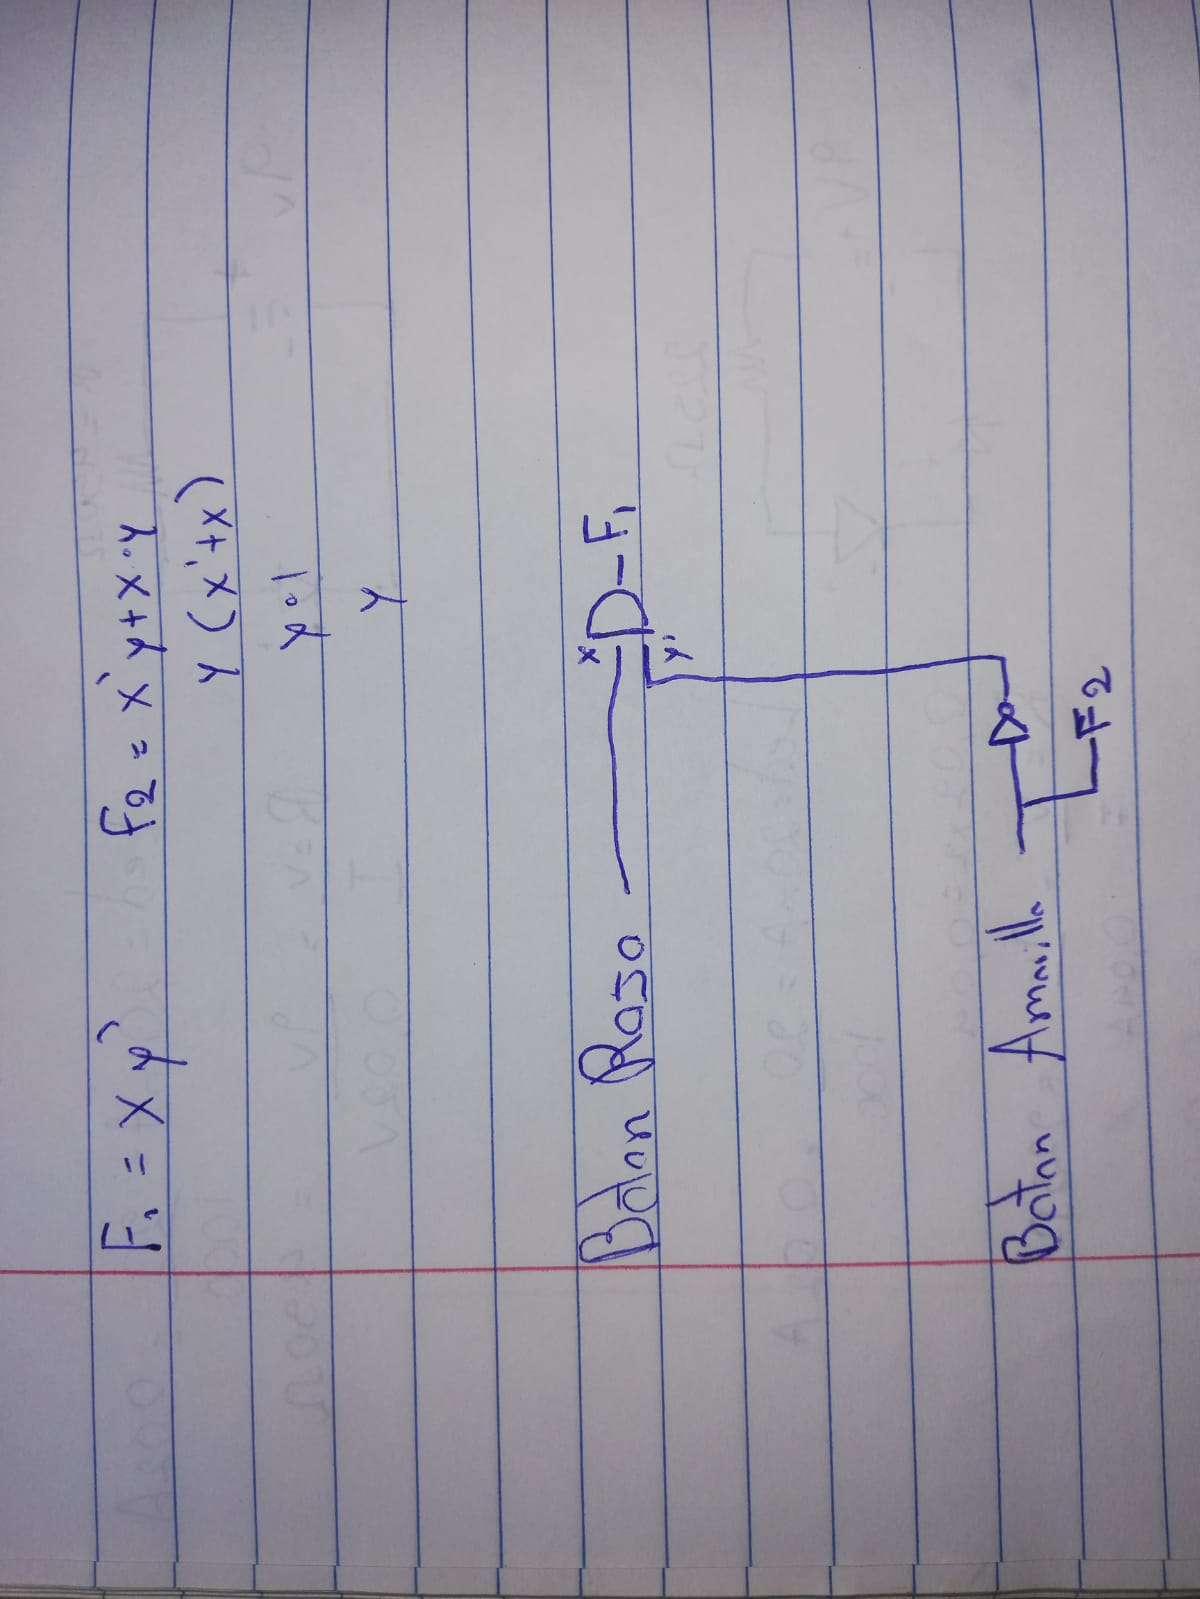 F₁ = x y'    F₂ = x'y + x·y
y (x' + x)
y·1
y
x
Boton Roso    F₁
y'
Boton Amarillo
F₂